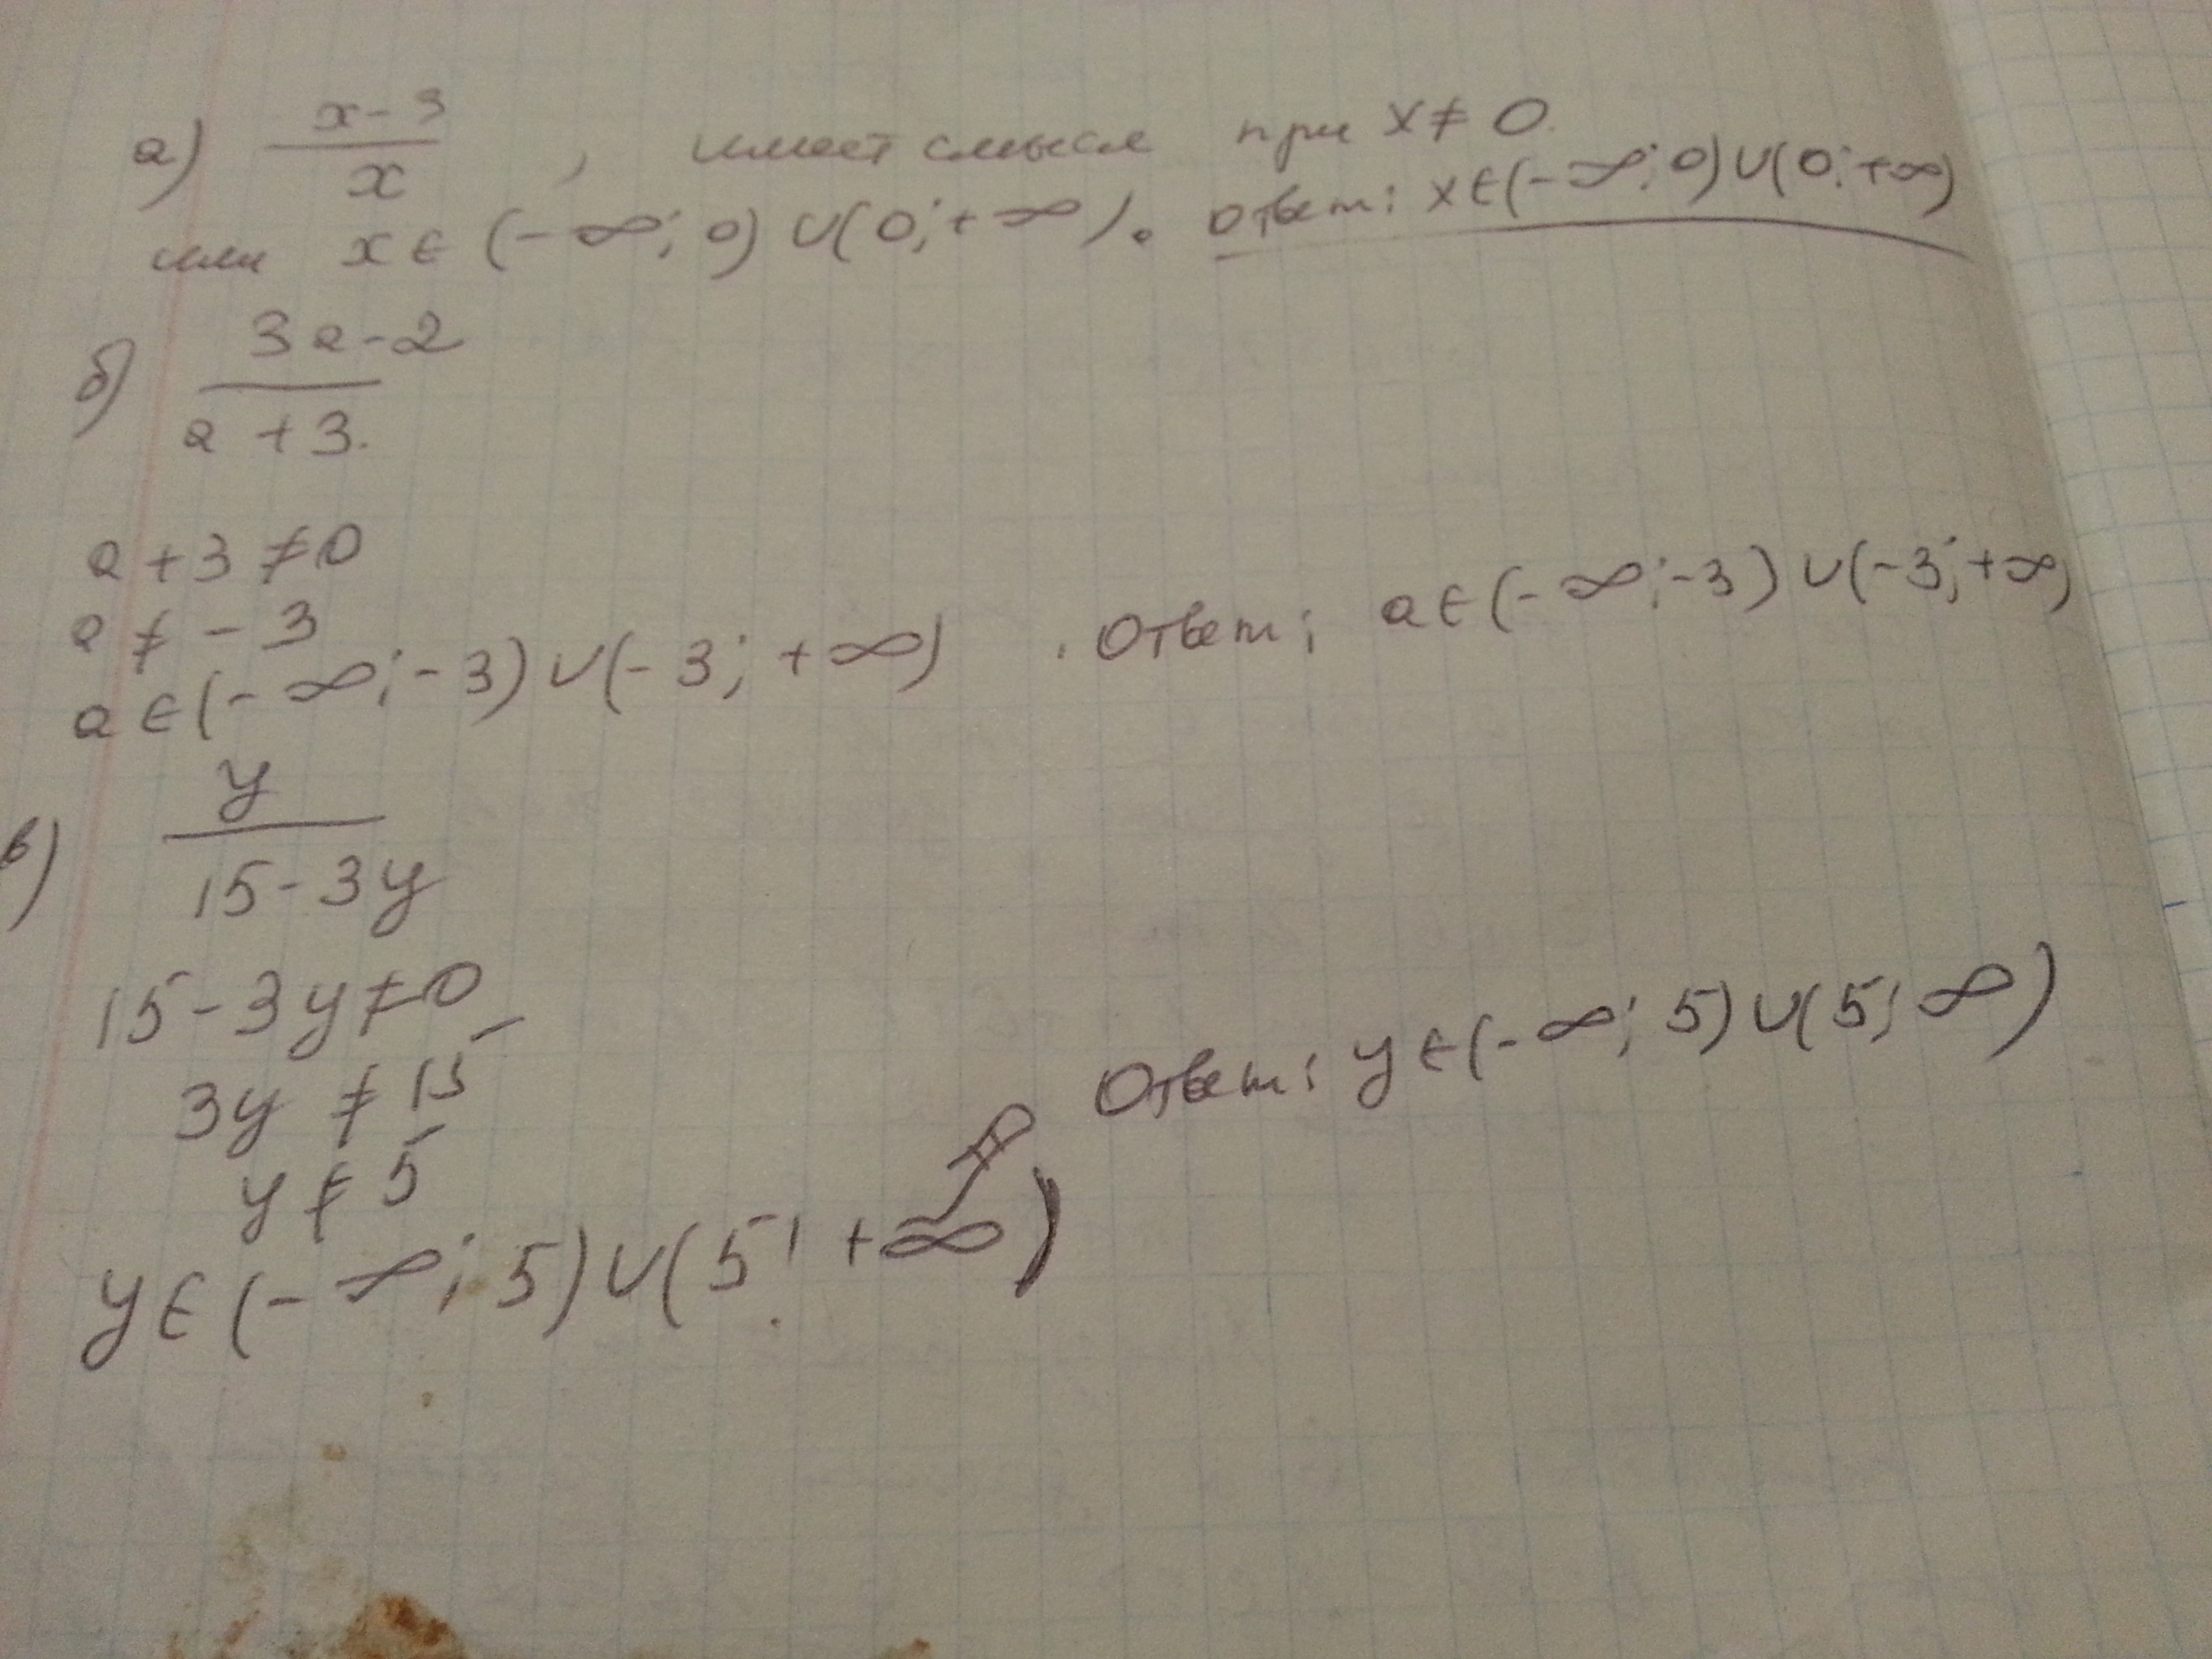 а) x-3
x , имеет смысл при x≠0.
или x∈(-∞; 0)∪(0;+∞). Ответ: x∈(-∞; 0)∪(0;+∞)
б) 3a-2
a+3.
a+3≠0
a≠-3
a∈(-∞;-3)∪(-3;+∞) . Ответ: a∈(-∞;-3)∪(-3;+∞)
в) y
15-3y
15-3y≠0
3y≠15
y≠5
y∈(-∞; 5)∪(5; +∞) Ответ: y∈(-∞; 5)∪(5; ∞)